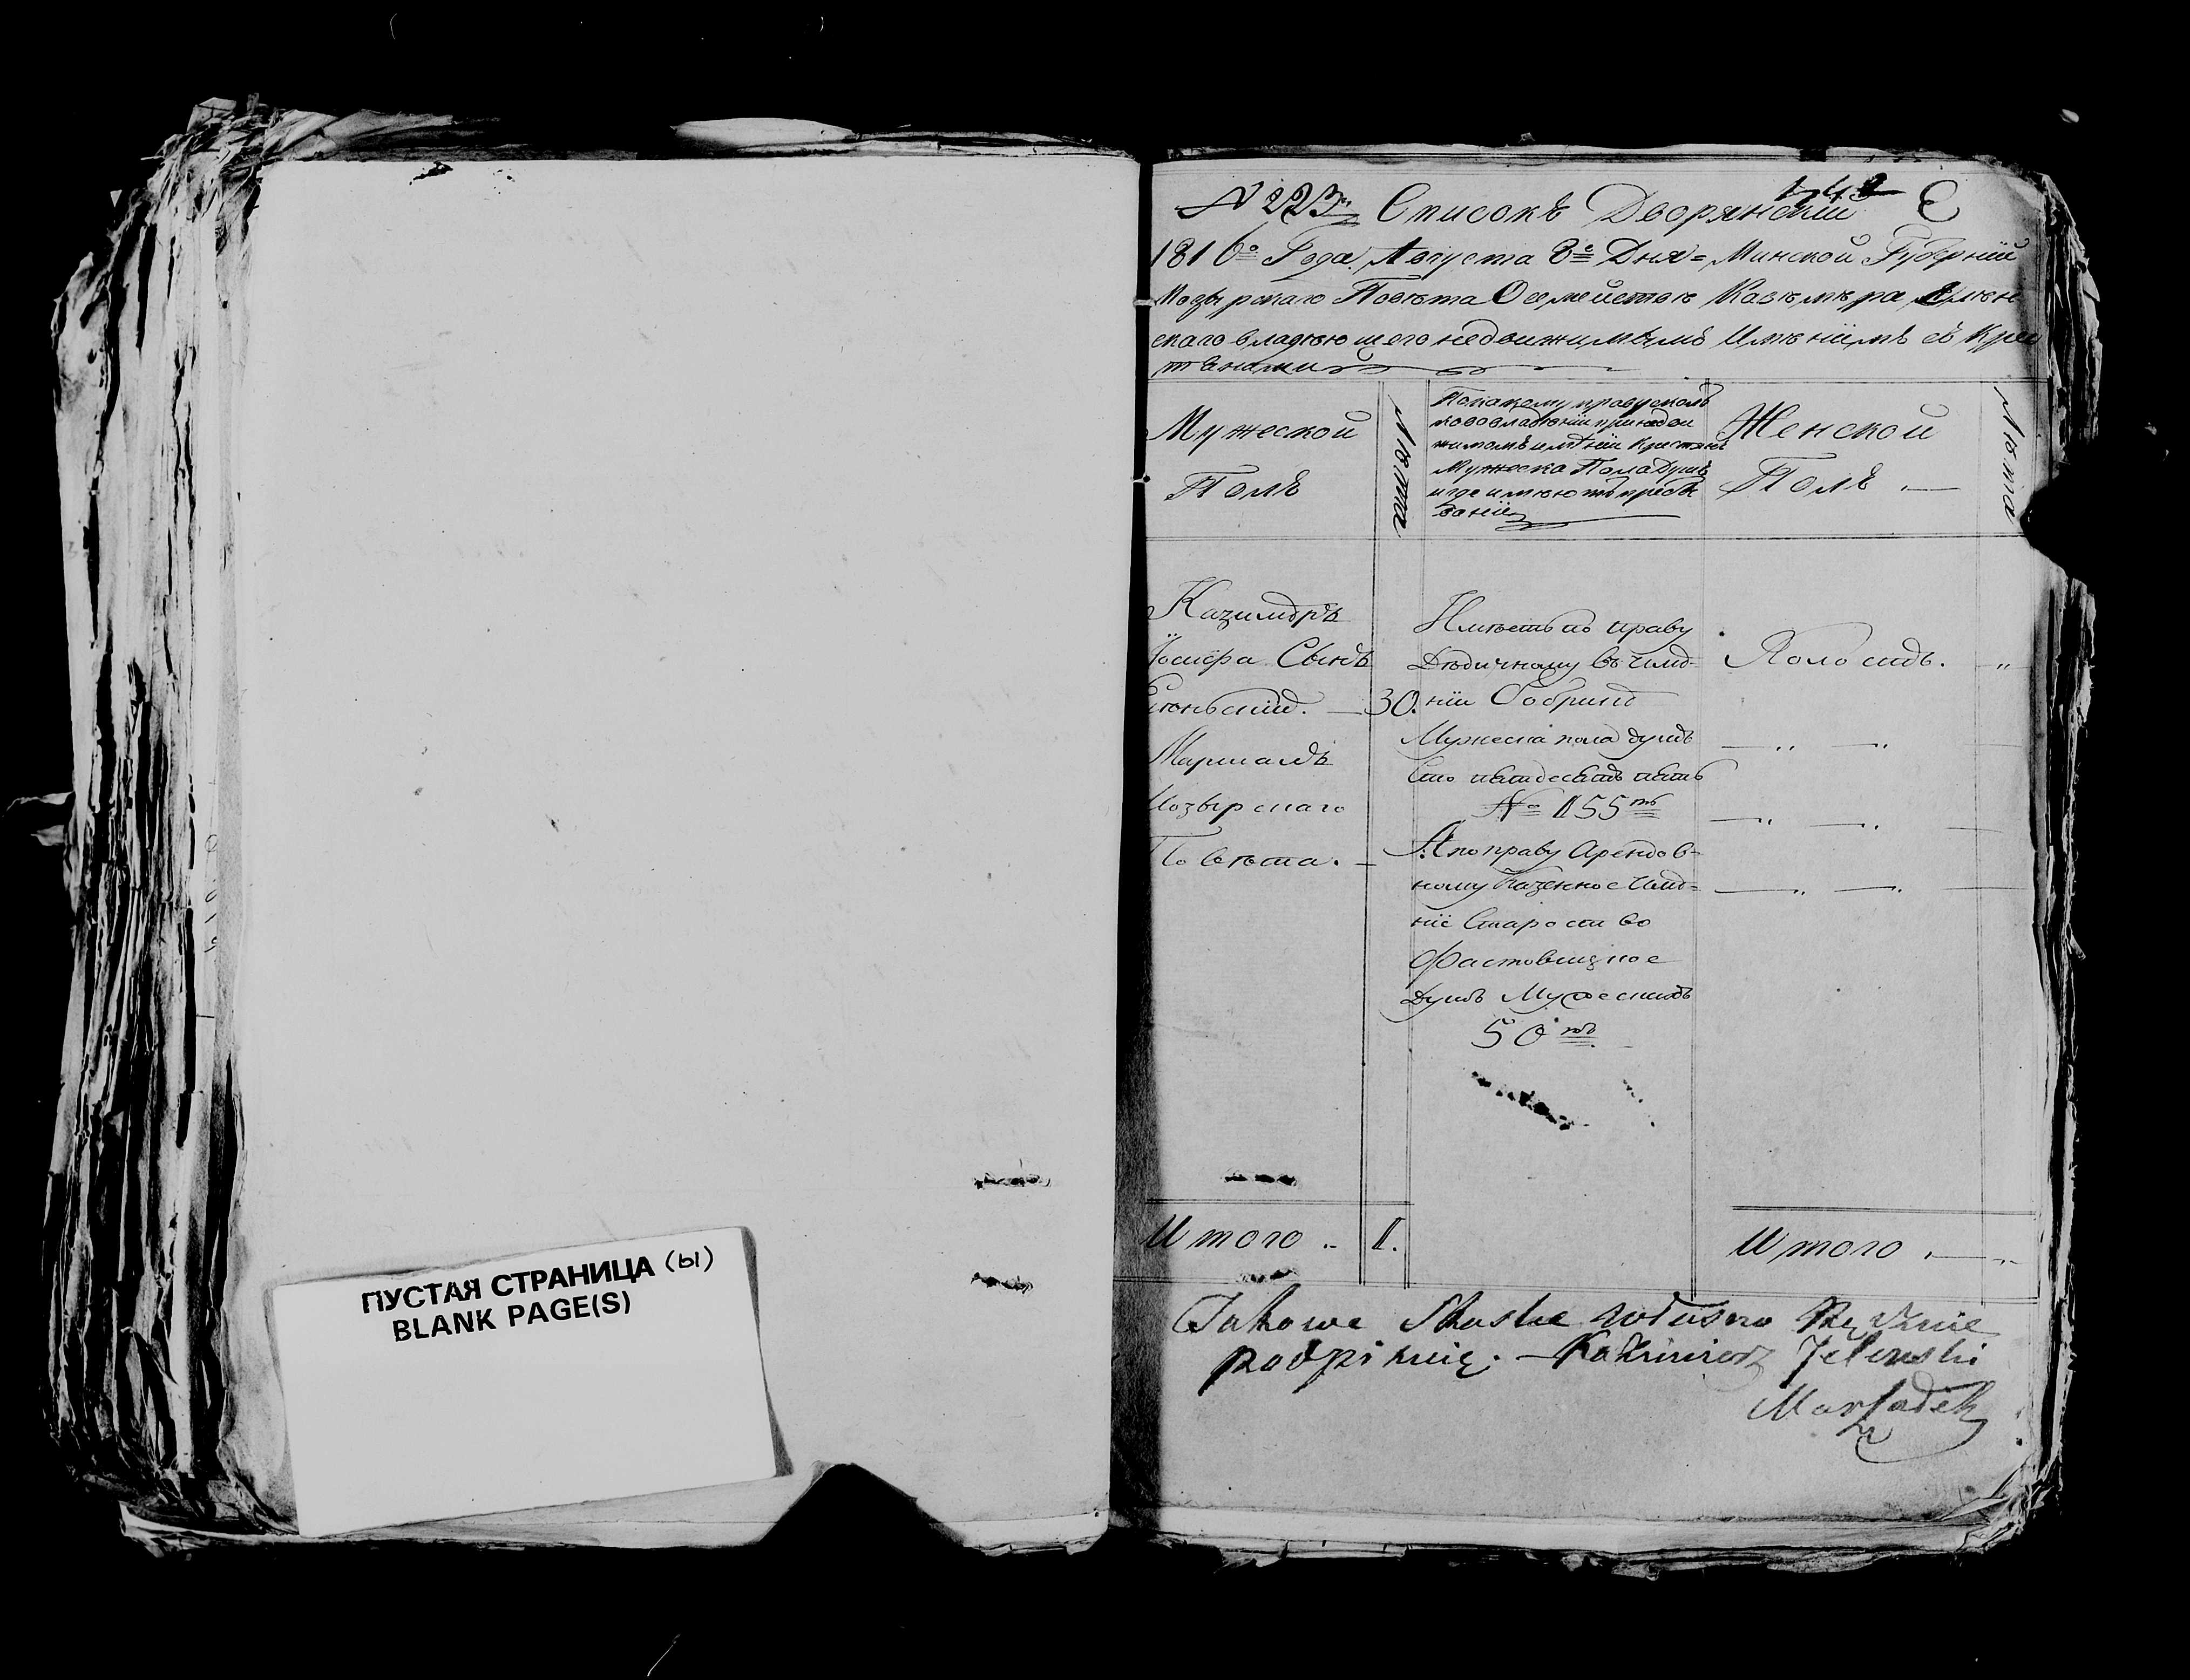 ПУСТАЯ СТРАНИЦА (ы)
BLANK PAGE(S)
N 223 Списокъ Дворянскій
1816го Года Августа 8го Дня = Минской Губерніи
Мозырскаго Повѣта О семействѣ Казѣмѣра Елѣн
скаго владѣющего недвижимымъ Имѣнiимъ съ Крес
тьнами
Мужеской
Полъ
Лѣта
Покакому праву сколь
ково владѣніи при недви
жимомъ имѣніи Кристьнъ
Мужеска Пола Душъ
и где имѣютъ пребы
ваніи
Женской
Полъ
Лѣта
Казимѣръ
Іосифа Сынъ
Еленьскій. 30.
Маршалъ
Мозырскаго
Повѣта.
Имѣетъ по праву
Дѣдичному въ имѣ-
ніи
Мужеска пола душъ
сто пятдесятъ пять
№ 155ть
А по праву Арендов-
ному Казенное Имѣ-
ніе Староство
Душъ Мужескихъ
50тъ
Холостъ.
Итого 1.
Итого
Takowe Skaskie własno Ręcznie
podpisuię. Kazimierz Jelenski
Marszałek